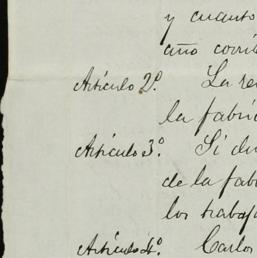 y cuanto
año corri
Artículo 2º. La re
la fabri
Artículo 3º. Si du
de la fab
los trabaj
Artículo 4º. Carlos